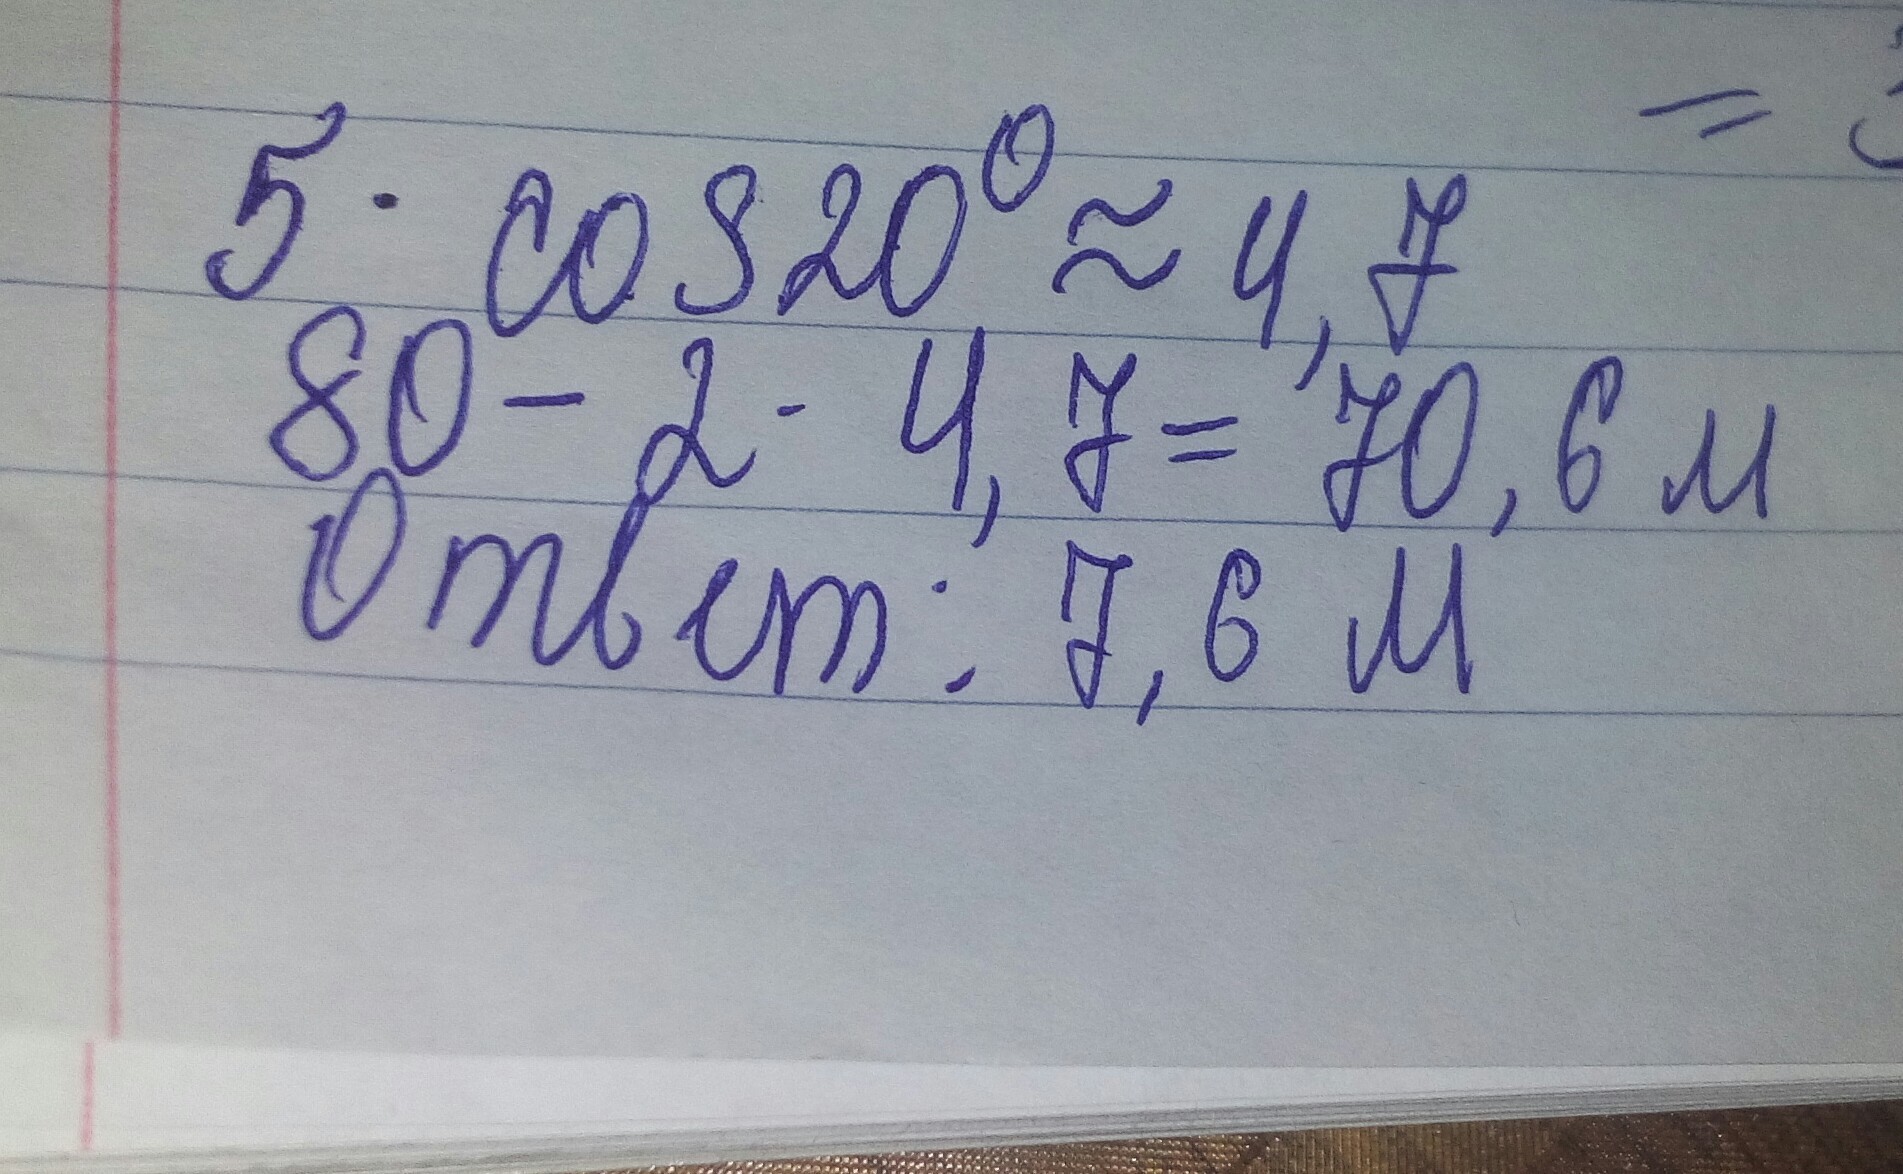 =
5 · cos 20⁰ ≈ 4,7
80 - 2 · 4,7 = 70,6 м
Ответ: 7,6 м